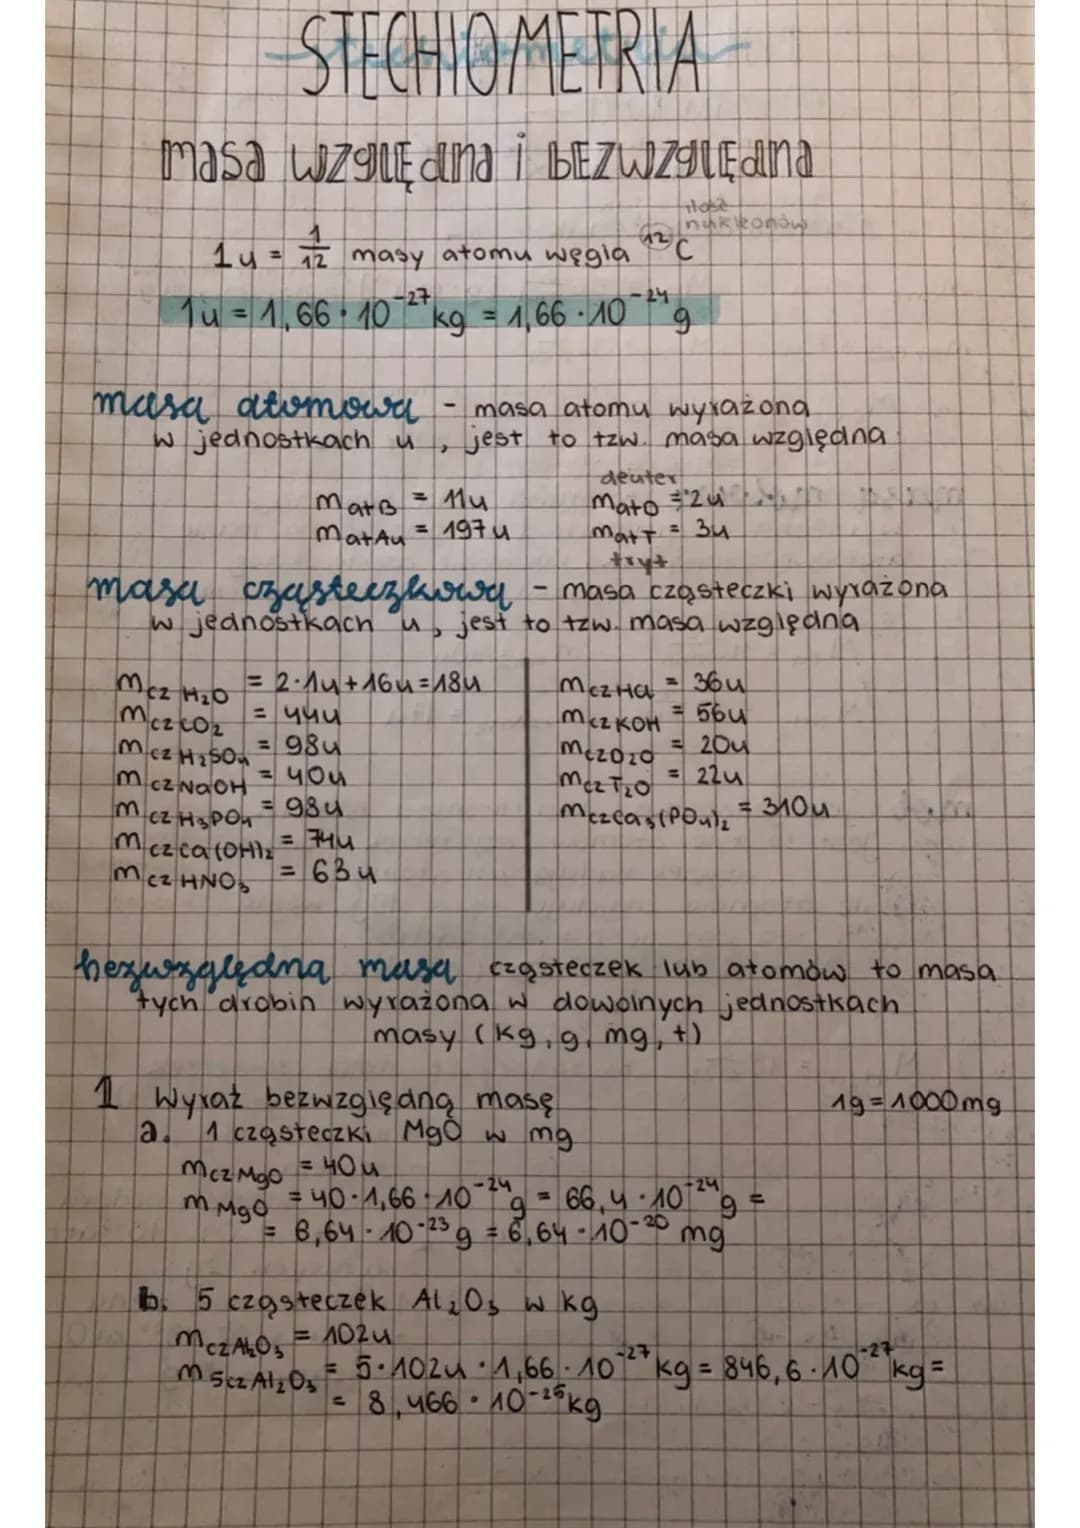 STECHIOMETRIA
masa WZGLĘdna i bEZWZGLĘdna
ilość
nukleonów
1u = 1/12 masy atomu węgla ¹²C
1u = 1,66 · 10⁻²⁷ kg = 1,66 · 10⁻²⁴ g
masa atomowa - masa atomu wyrażona
w jednostkach u, jest to tzw. masa względna
deuter
m at B = 11u
m at D = 2u
m at Au = 197u
m at T = 3u
tryt
masa cząsteczkowa - masa cząsteczki wyrażona
w jednostkach u, jest to tzw. masa względna
m cz H₂O = 2·1u+16u=18u
m cz CO₂ = 44u
m cz H₂SO₄ = 98u
m cz NaOH = 40u
m cz H₃PO₄ = 98u
m cz Ca(OH)₂ = 74u
m cz HNO₃ = 63u
m cz HCl = 36u
m cz KOH = 56u
m cz D₂O = 20u
m cz T₂O = 22u
m cz Ca₃(PO₄)₂ = 310u
bezwzględna masa cząsteczek lub atomów to masa
tych drobin wyrażona w dowolnych jednostkach
masy (kg, g, mg, t)
1 Wyraź bezwzględną masę
1g=1000mg
a. 1 cząsteczki MgO w mg
m cz MgO = 40u
m MgO = 40·1,66·10⁻²⁴g = 66,4·10⁻²⁴g =
= 6,64·10⁻²³g = 6,64·10⁻²⁰ mg
b. 5 cząsteczek Al₂O₃ w kg
m cz Al₂O₃ = 102u
m 5cz Al₂O₃ = 5·102u·1,66·10⁻²⁷ kg = 846,6·10⁻²⁷ kg =
= 8,466·10⁻²⁵ kg